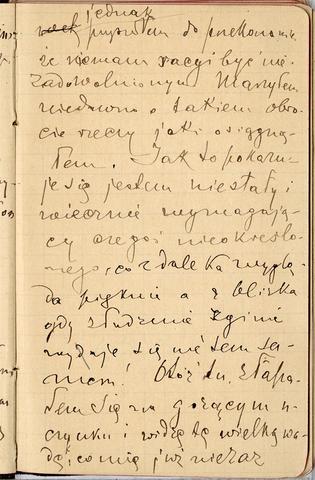 jednak
przyszłem do przekonania
że niemam racyi być nie-
zadowolnionym. Marzyłem
niedawno o takiem obro-
cie rzeczy jaki osiągną-
łem. Jak to pokazu-
je się jestem niestały i
wiecznie wymagają-
cy czegoś nieokreślo-
nego, co z daleka wyglą-
da pięknie a z bliska
gdy złudzenie zginie
wydaje się nie tem sa-
mem! Otóż tu złapa-
łem się na gorącym u-
czynku i widzę tę wielką wa-
dę, co mię już nieraz